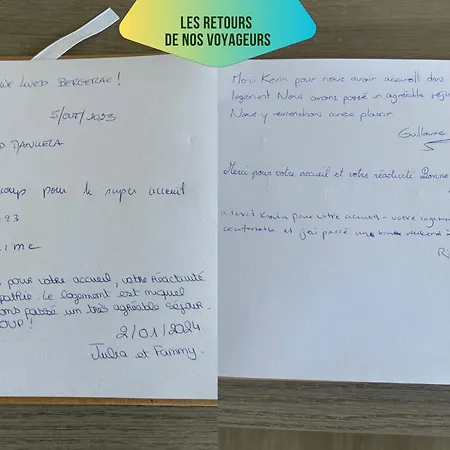 LES RETOURS
DE NOS VOYAGEURS
WE LOVED BERGERAC !
5/OUT/2023
DANIELA
pour le super accueil
23
pour votre accueil, votre réactivité
Le logement est niquel
ons passé un très agréable séjour.
OUP !
2/01/2024
Julia et Fammy.
Merci Kevin pour nous avoir accueilli dans
logement. Nous avons passé un agréable séj
Nous y reviendrons avec plaisir.
Guillaume
Merci pour votre accueil et votre réactivité. Bonne
Kevin pour votre accueil - votre logeme
confortable et j'ai passé un